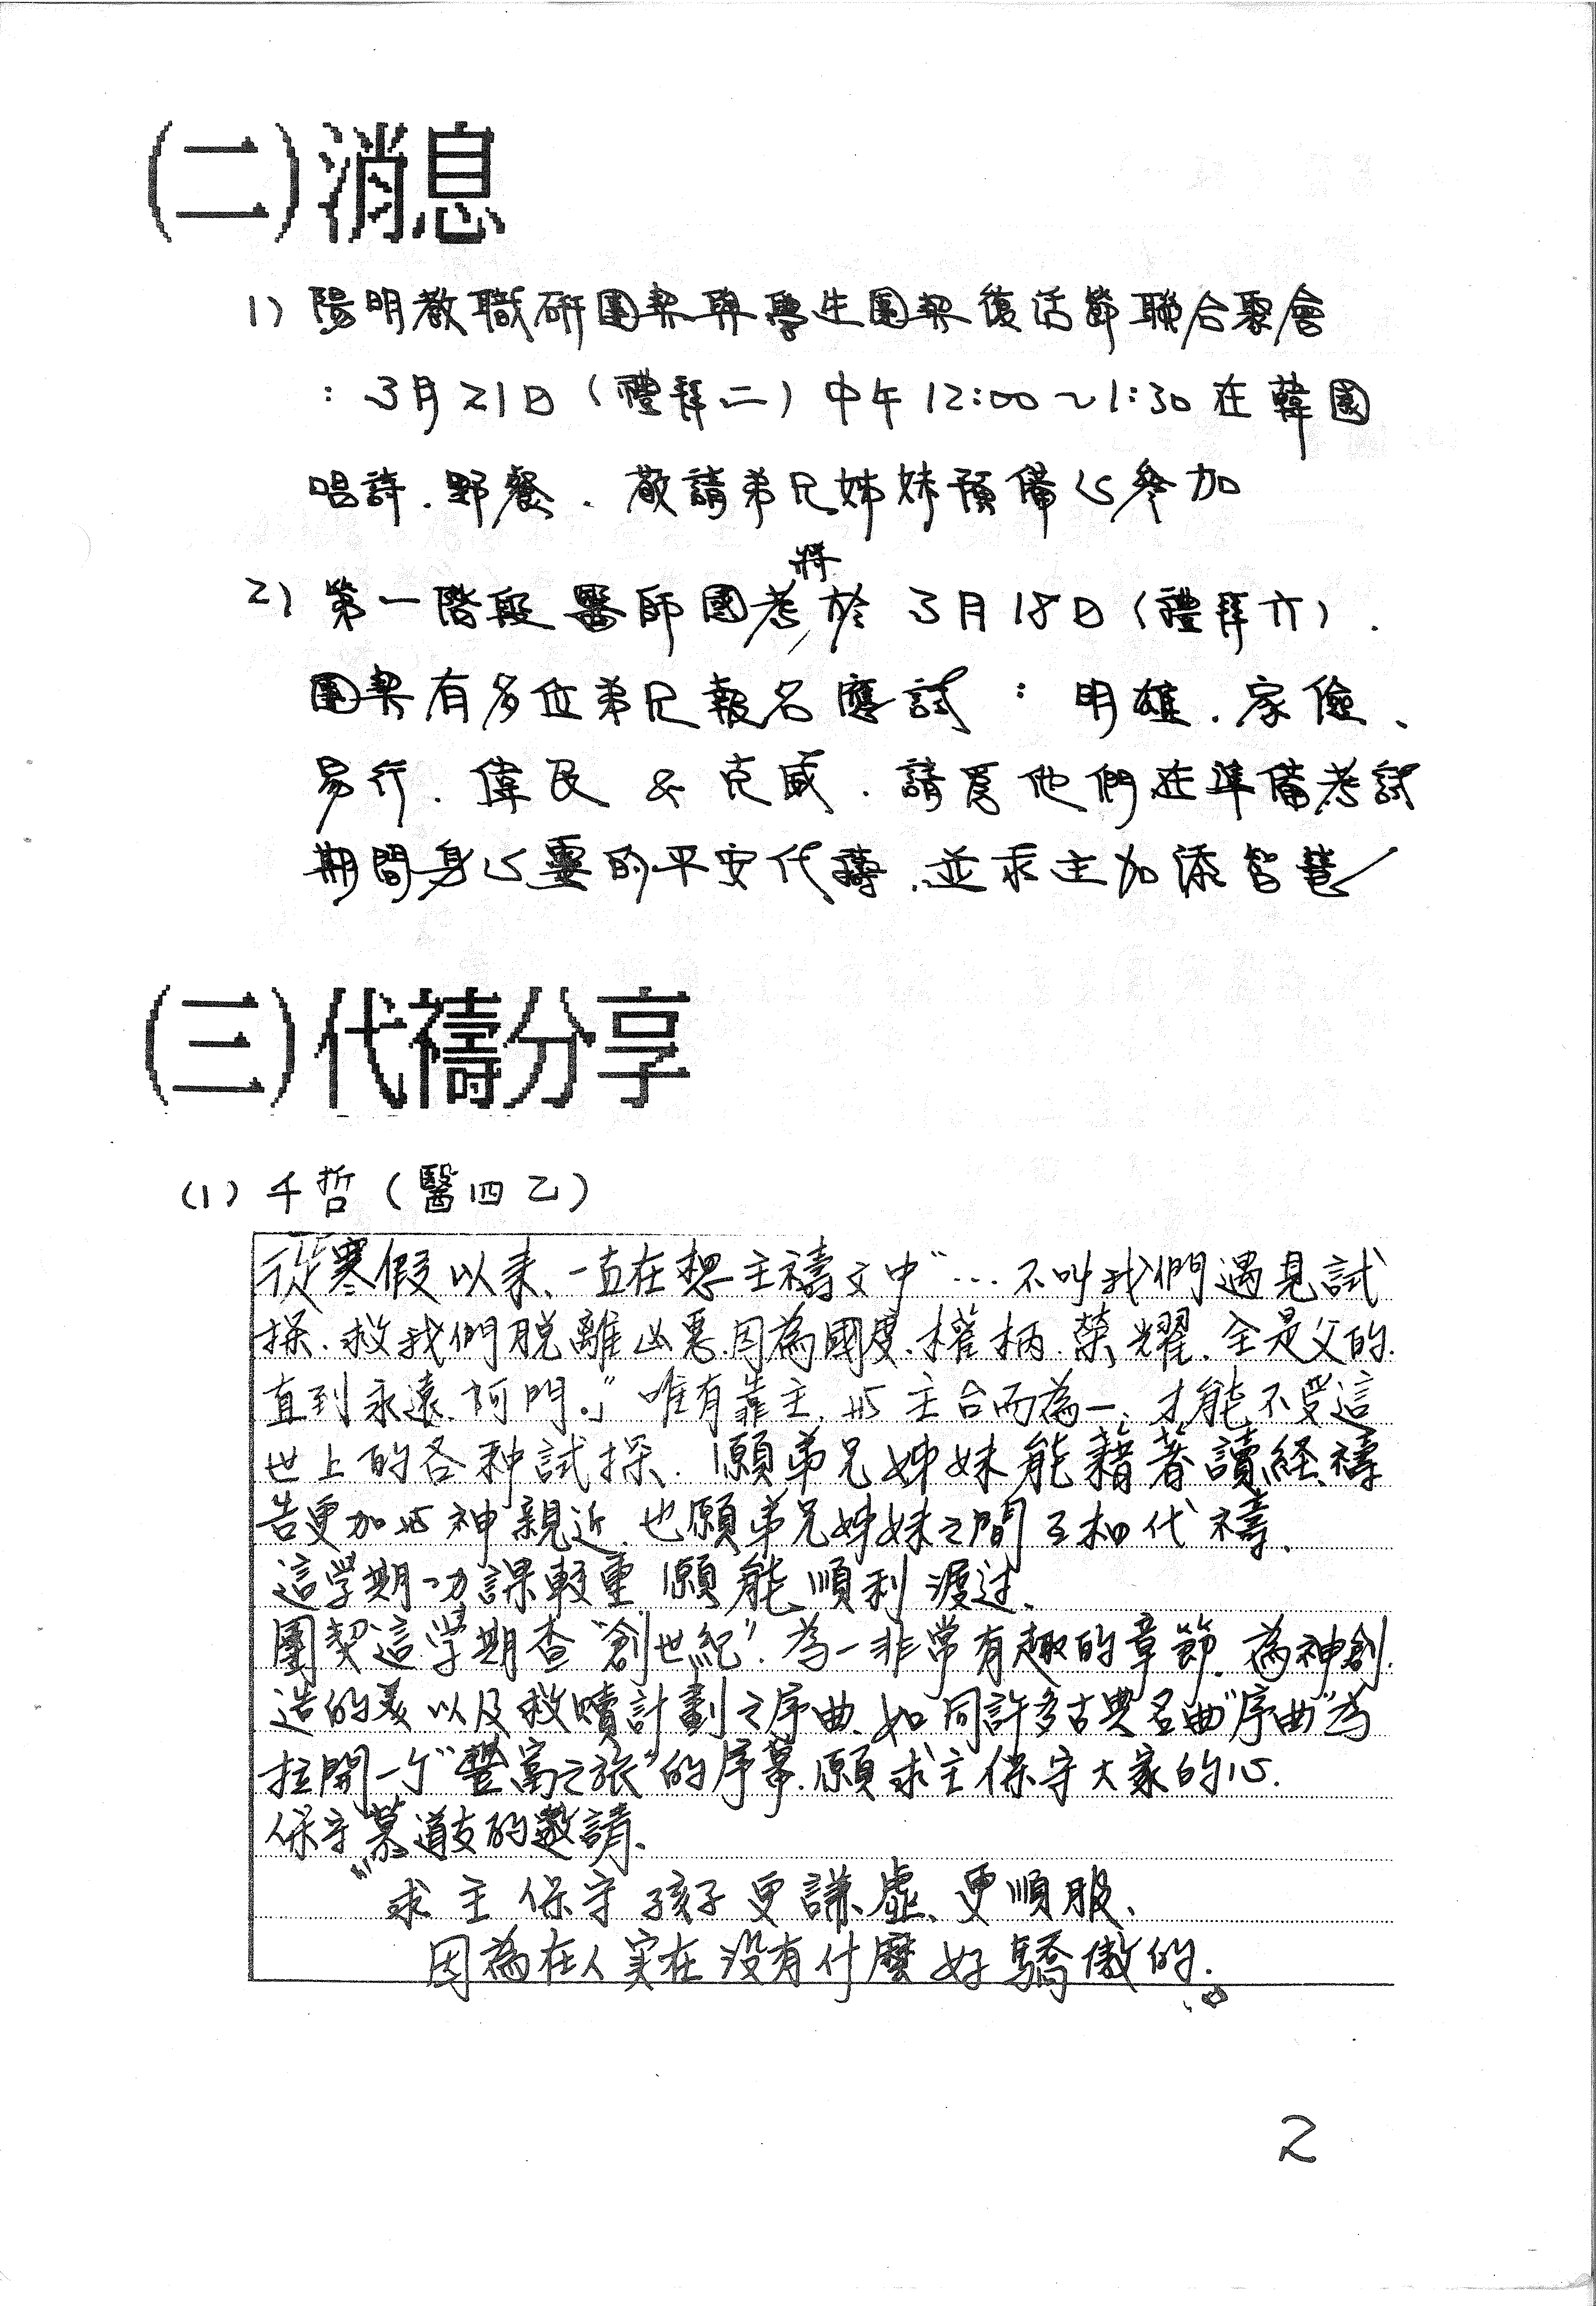 (二)消息
1) 陽明教職研團契與學生團契復活節聯合聚會
：3月21日（禮拜二）中午12:00~1:30在韓園
唱詩．野餐．敬請弟兄姊妹預備心參加
2) 第一階段醫師國考將於3月18日（禮拜六）．
團契有多位弟兄報名應試：明雄．家儉、
易行．偉民 & 克威．請為他們在準備考試
期間身心靈的平安代禱．並求主加添智慧
(三)代禱分享
(1) 千哲（醫四乙）
從寒假以來、一直在想主禱文中“…不叫我們遇見試
探．救我們脫離凶惡．因為國度．權柄．榮耀．全是父的．
直到永遠．阿門。」唯有靠主．与主合而為一，才能不受這
世上的各种試探．願弟兄姊妹能藉著讀経禱
告更加与神親近．也願弟兄姊妹之間互相代禱．
這學期功課較重 願能順利渡过．
團契這學期查“創世紀”．為一非常有趣的章節．為神創
造的美以及救贖計劃之序曲．如同許多古典名曲“序曲”為
拉開一个“豐富之旅”的序幕．願求主保守大家的心．
保守慕道友的邀請．
求主保守孩子更謙虛、更順服、
因為在人実在沒有什麼好驕傲的．
2